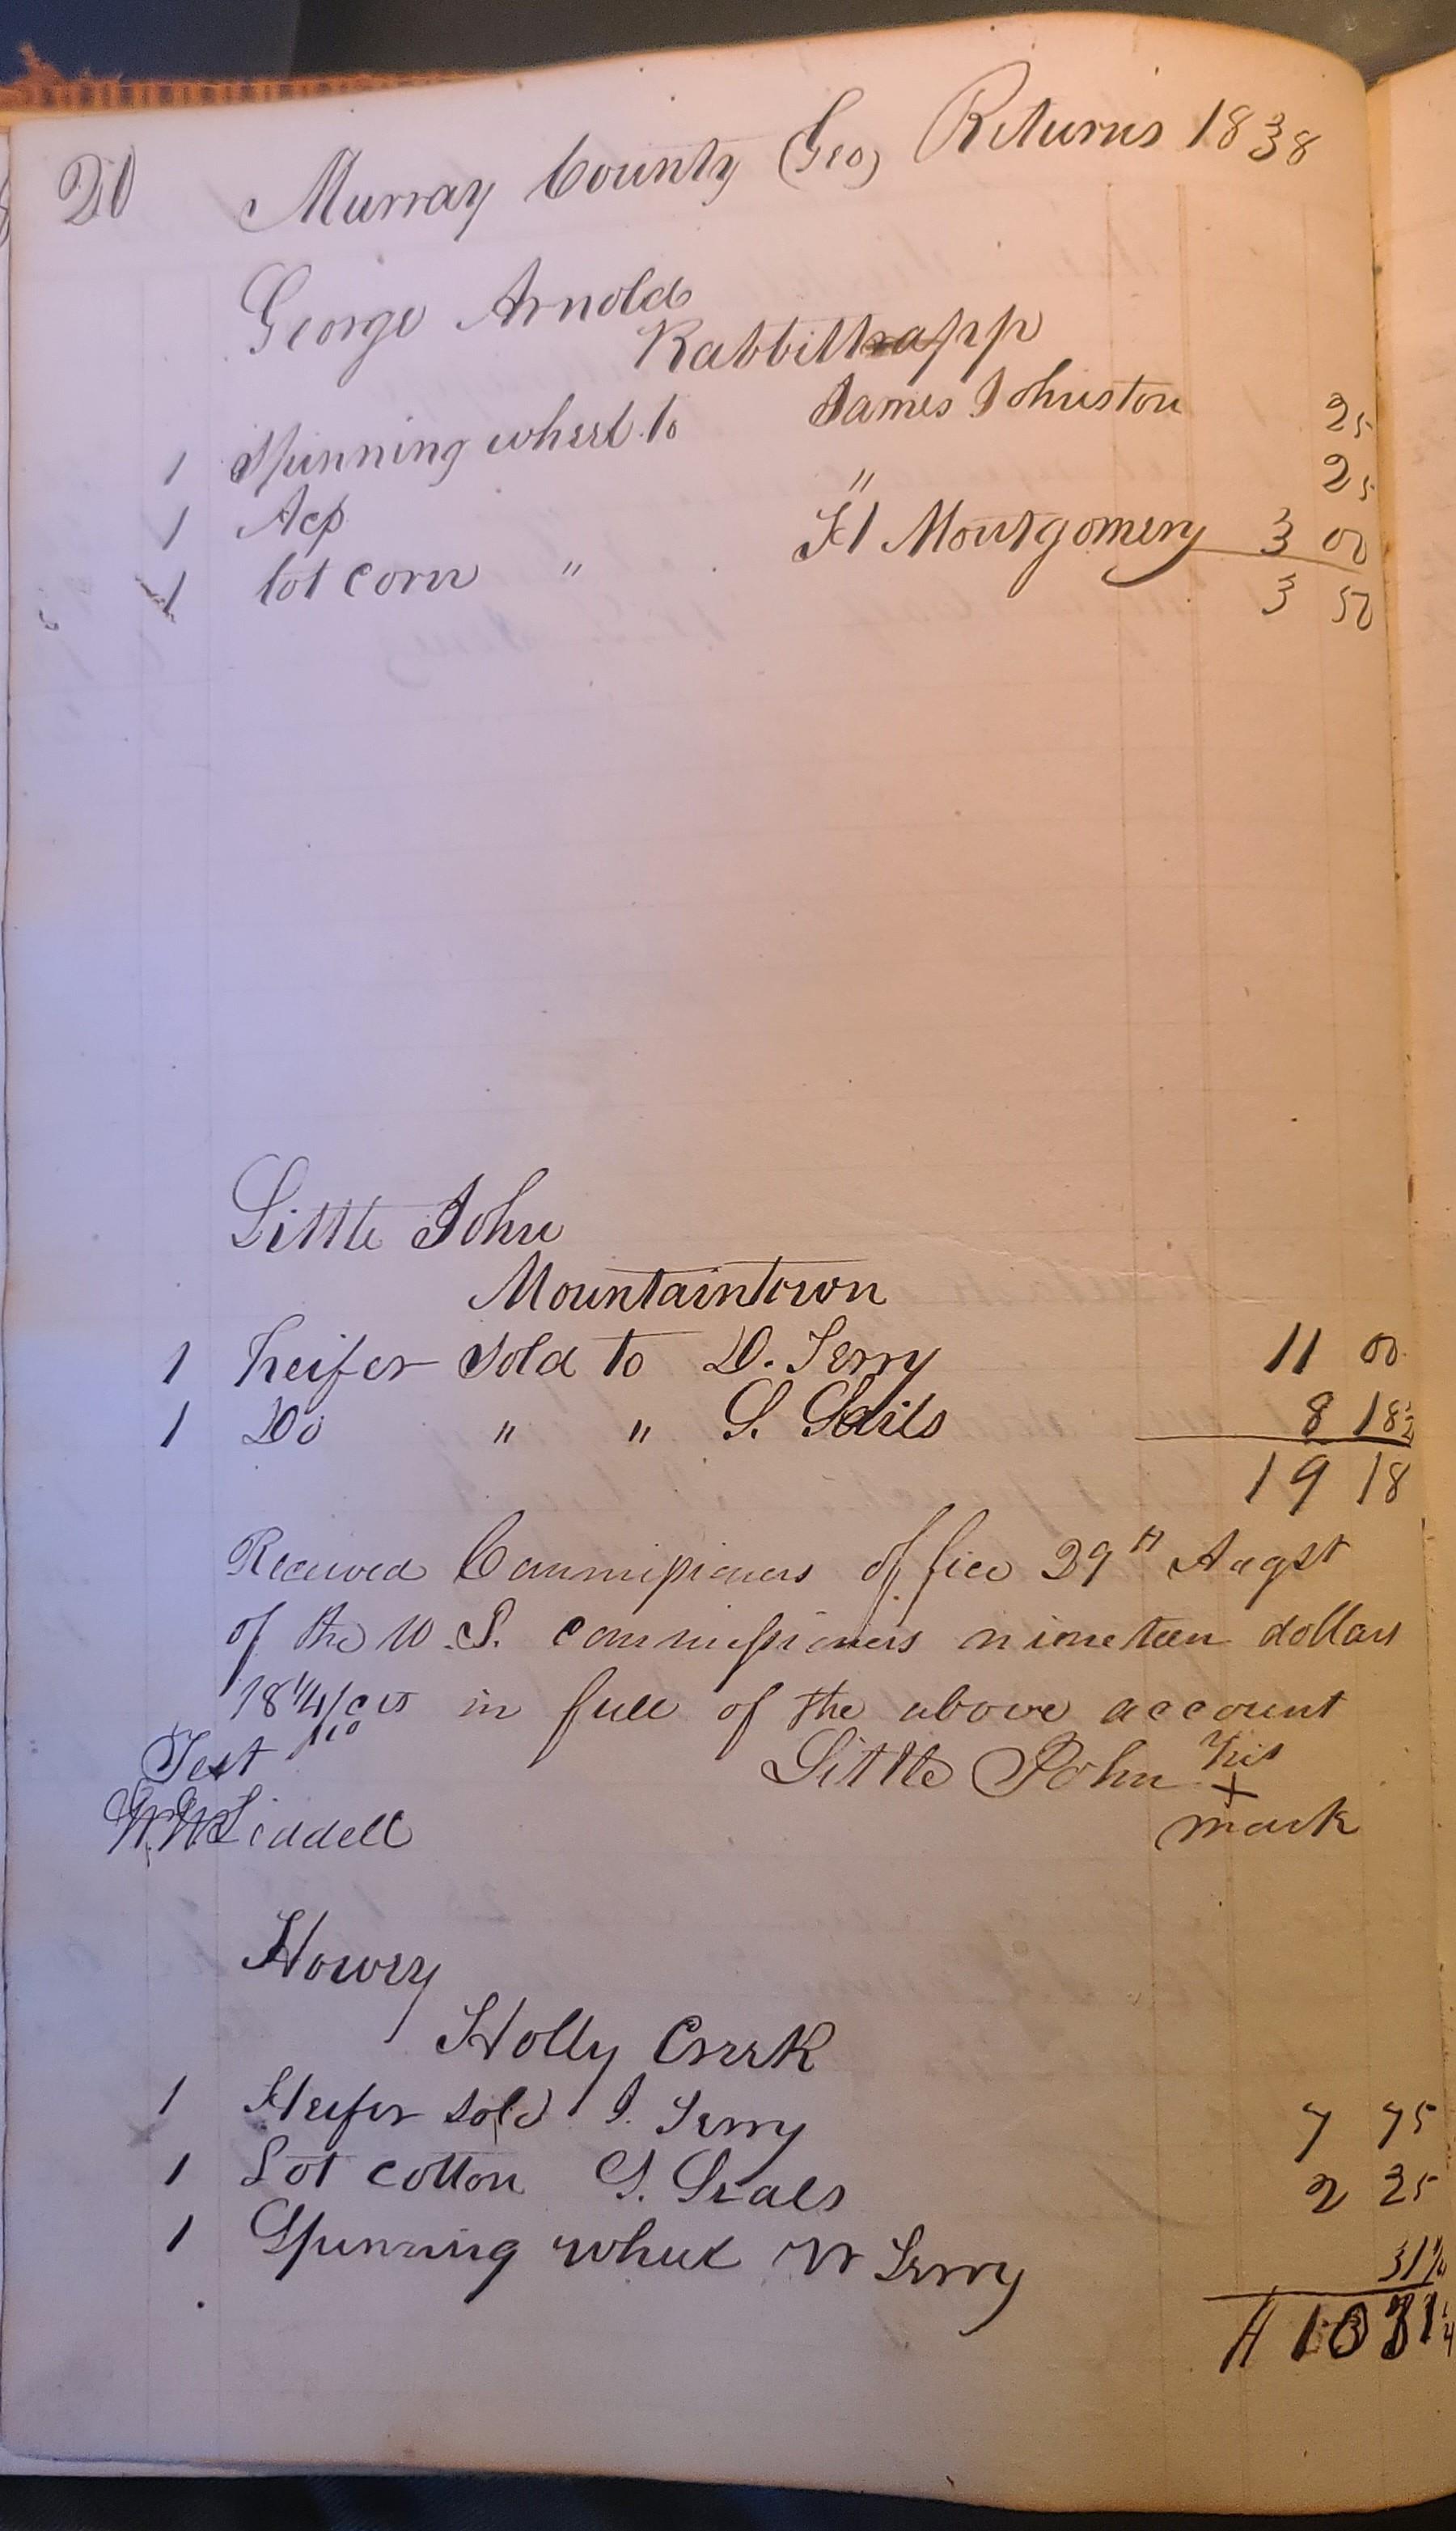 20 Murray County (Geo) Returns 1838
George Arnold
Rabbittrapp
1 Spinning wheel to James Johnston 25
1 Acp " 25
1 lot corn " H Montgomery 3 00
3 50
Little John
Mountaintown
1 heifer sold to D. Terry 11 00
1 Do " " S. Seils 8 18½
19 18
Received Commissioners office 29th Augst
of the U.S. commissioners nineteen dollars
18 1/4/cts in full of the above account
Test Little John his
W.W. Liddell + mark
Howey
Holly Creek
1 Heifer sold J. Terry 7 75
1 Lot cotton S. Seals 2 25
1 Spinning wheel W Terry 31¼
10 31¼